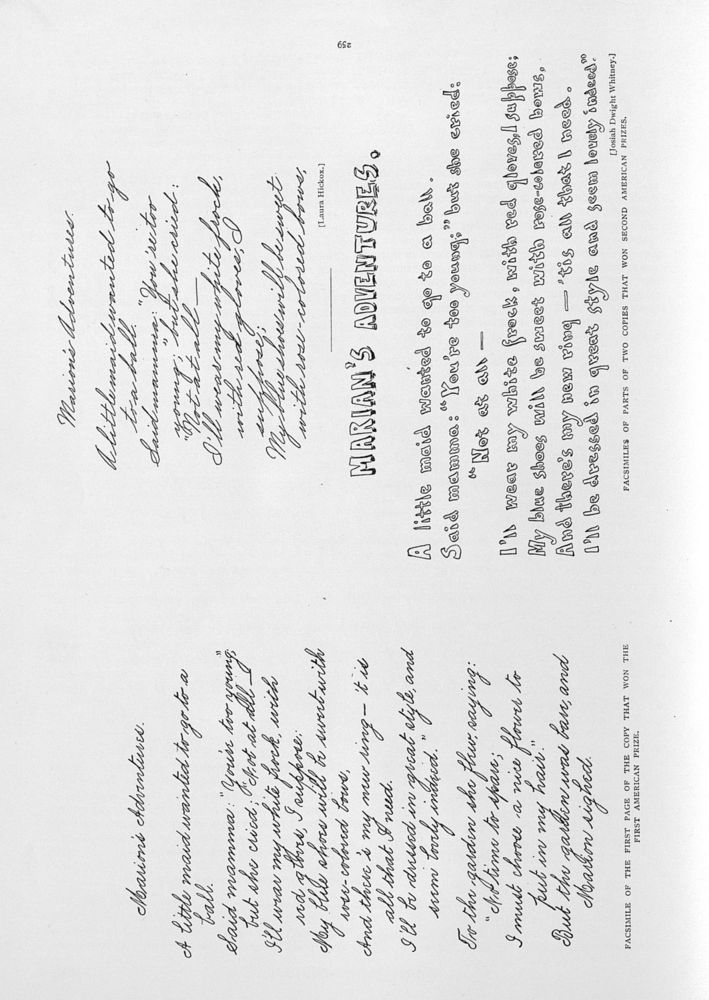 Marion's Adventures.
A little maid wanted to go to a
ball.
Said mamma: "You're too young,"
but she cried; "Not at all—
I'll wear my white frock, with
red gloves, I suppose;
My blue shoes will be sweet with
rose-colored bows,
And there is my new ring — 't is
all that I need.
I'll be dressed in great style, and
seem lovely indeed."
To the garden she flew, saying:
"No time to spare;
I must choose a nice flower to
put in my hair."
But the garden was bare, and
Marion sighed.
FACSIMILE OF THE FIRST PAGE OF THE COPY THAT WON THE
FIRST AMERICAN PRIZE.
Marion's Adventures.
A little maid wanted to go
to a ball.
Said mamma: "You're too
young;" but she cried:
"Not at all—
I'll wear my white frock,
with red gloves I
suppose;
My blue shoes will be sweet
with rose-colored bows,
[Laura Hickox.]
MARIAN'S ADVENTURES.
A little maid wanted to go to a ball.
Said mamma: "You're too young;" but she cried:
"Not at all —
I'll wear my white frock, with red gloves, I suppose;
My blue shoes will be sweet with rose-colored bows,
And there's my new ring — 'tis all that I need.
I'll be dressed in great style and seem lovely indeed."
[Josiah Dwight Whitney.]
FACSIMILES OF PARTS OF TWO COPIES THAT WON SECOND AMERICAN PRIZES.
259